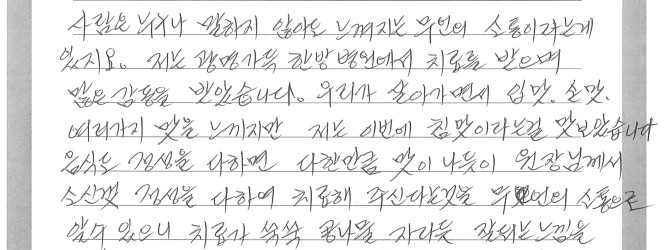 사람은 누구나 말하지 않아도 느껴지는 무언의 소통이라는게
있지요. 저는 광명가득 한방병원에서 치료를 받으며
많은 감동을 받았습니다. 우리가 살아가면서 입맛. 손맛.
여러가지 맛을 느끼지만 저는 이번에 침맛이라는걸 맛보았습니다
음식도 정성을 다하면 다한만큼 맛이 나듯이 원장님께서
소신껏 정성을 다하여 치료해 주신다는것을 무언의 소통으로
알수 있으니 치료가 쑥쑥 콩나물 자라듯 잘되는느낌을